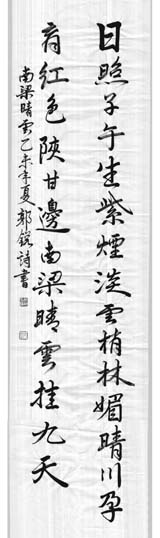 日照子午生紫煙淡雲梢林媚晴川孕
育紅色陝甘邊南梁晴雲挂九天
南梁晴雲乙未年夏郭銳詩書